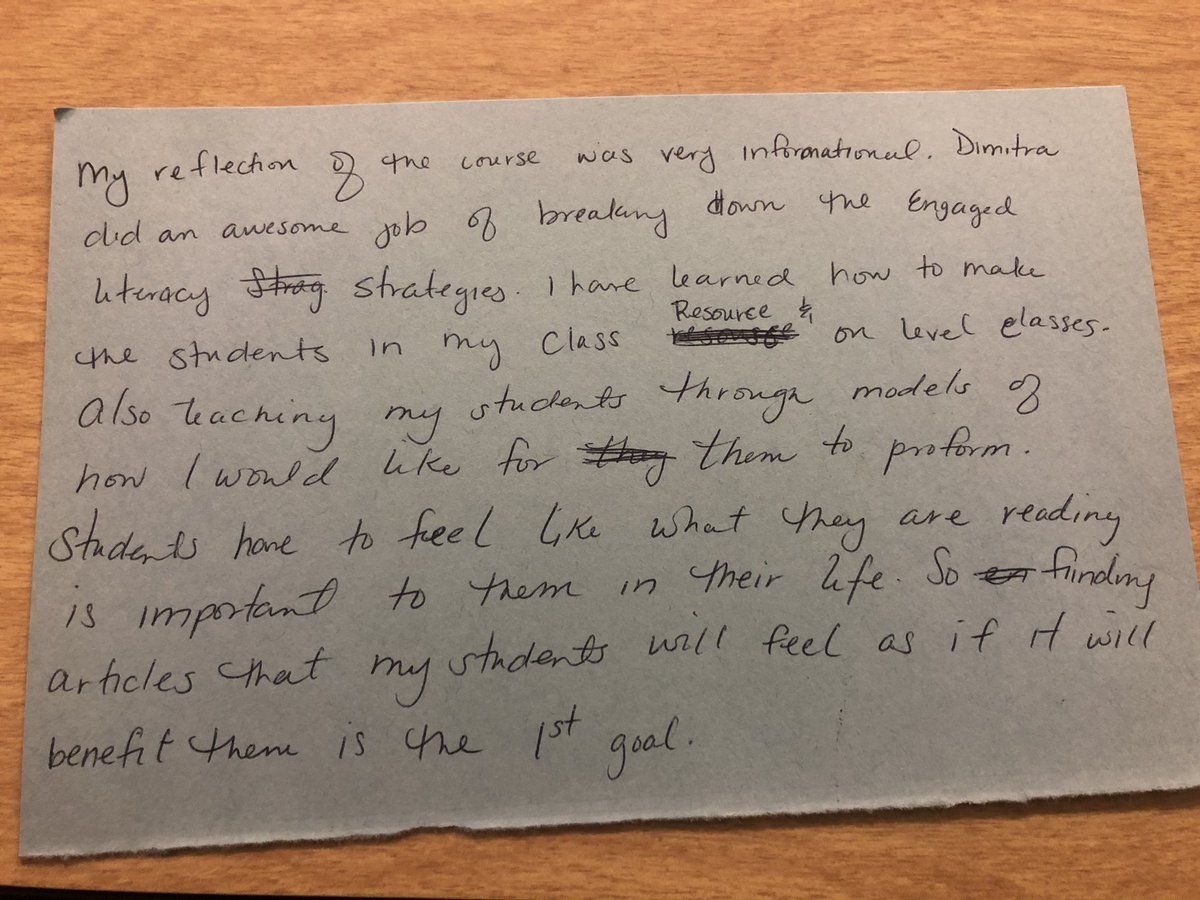 My reflection of the course was very informational. Dimitra
did an awesome job of breaking down the Engaged
literacy strategies. I have learned how to make
the students in my class Resource & on level classes.
Also teaching my students through models of
how I would like for them to proform.
Students have to feel like what they are reading
is important to them in their life. So finding
articles that my students will feel as if it will
benefit them is the 1st goal.